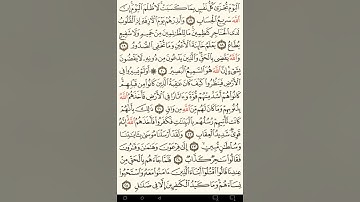 ٱلْيَوْمَ تُجْزَىٰ كُلُّ نَفْسٍۭ بِمَا كَسَبَتْ لَا ظُلْمَ ٱلْيَوْمَ إِنَّ
ٱللَّهَ سَرِيعُ ٱلْحِسَابِ ١٧ وَأَنذِرْهُمْ يَوْمَ ٱلْءَازِفَةِ إِذِ ٱلْقُلُوبُ
لَدَى ٱلْحَنَاجِرِ كَٰظِمِينَ مَا لِلظَّٰلِمِينَ مِنْ حَمِيمٍ وَلَا شَفِيعٍ
يُطَاعُ ١٨ يَعْلَمُ خَآئِنَةَ ٱلْأَعْيُنِ وَمَا تُخْفِى ٱلصُّدُورُ ١٩
وَٱللَّهُ يَقْضِى بِٱلْحَقِّ وَٱلَّذِينَ يَدْعُونَ مِن دُونِهِۦ لَا يَقْضُونَ
بِشَىْءٍ إِنَّ ٱللَّهَ هُوَ ٱلسَّمِيعُ ٱلْبَصِيرُ ٢٠ ۞ أَوَلَمْ يَسِيرُوا۟ فِى
ٱلْأَرْضِ فَيَنظُرُوا۟ كَيْفَ كَانَ عَٰقِبَةُ ٱلَّذِينَ كَانُوا۟ مِن قَبْلِهِمْ
كَانُوا۟ هُمْ أَشَدَّ مِنْهُمْ قُوَّةً وَءَاثَارًا فِى ٱلْأَرْضِ فَأَخَذَهُمُ ٱللَّهُ
بِذُنُوبِهِمْ وَمَا كَانَ لَهُم مِّنَ ٱللَّهِ مِن وَاقٍ ٢١ ذَٰلِكَ بِأَنَّهُمْ
كَانَت تَّأْتِيهِمْ رُسُلُهُم بِٱلْبَيِّنَٰتِ فَكَفَرُوا۟ فَأَخَذَهُمُ ٱللَّهُ إِنَّهُۥ
قَوِىٌّ شَدِيدُ ٱلْعِقَابِ ٢٢ وَلَقَدْ أَرْسَلْنَا مُوسَىٰ بِـَٔايَٰتِنَا
وَسُلْطَٰنٍ مُّبِينٍ ٢٣ إِلَىٰ فِرْعَوْنَ وَهَٰمَٰنَ وَقَٰرُونَ
فَقَالُوا۟ سَٰحِرٌ كَذَّابٌ ٢٤ فَلَمَّا جَآءَهُم بِٱلْحَقِّ مِنْ
عِندِنَا قَالُوا۟ ٱقْتُلُوٓا۟ أَبْنَآءَ ٱلَّذِينَ ءَامَنُوا۟ مَعَهُۥ وَٱسْتَحْيُوا۟
نِسَآءَهُمْ وَمَا كَيْدُ ٱلْكَٰفِرِينَ إِلَّا فِى ضَلَٰلٍ ٢٥